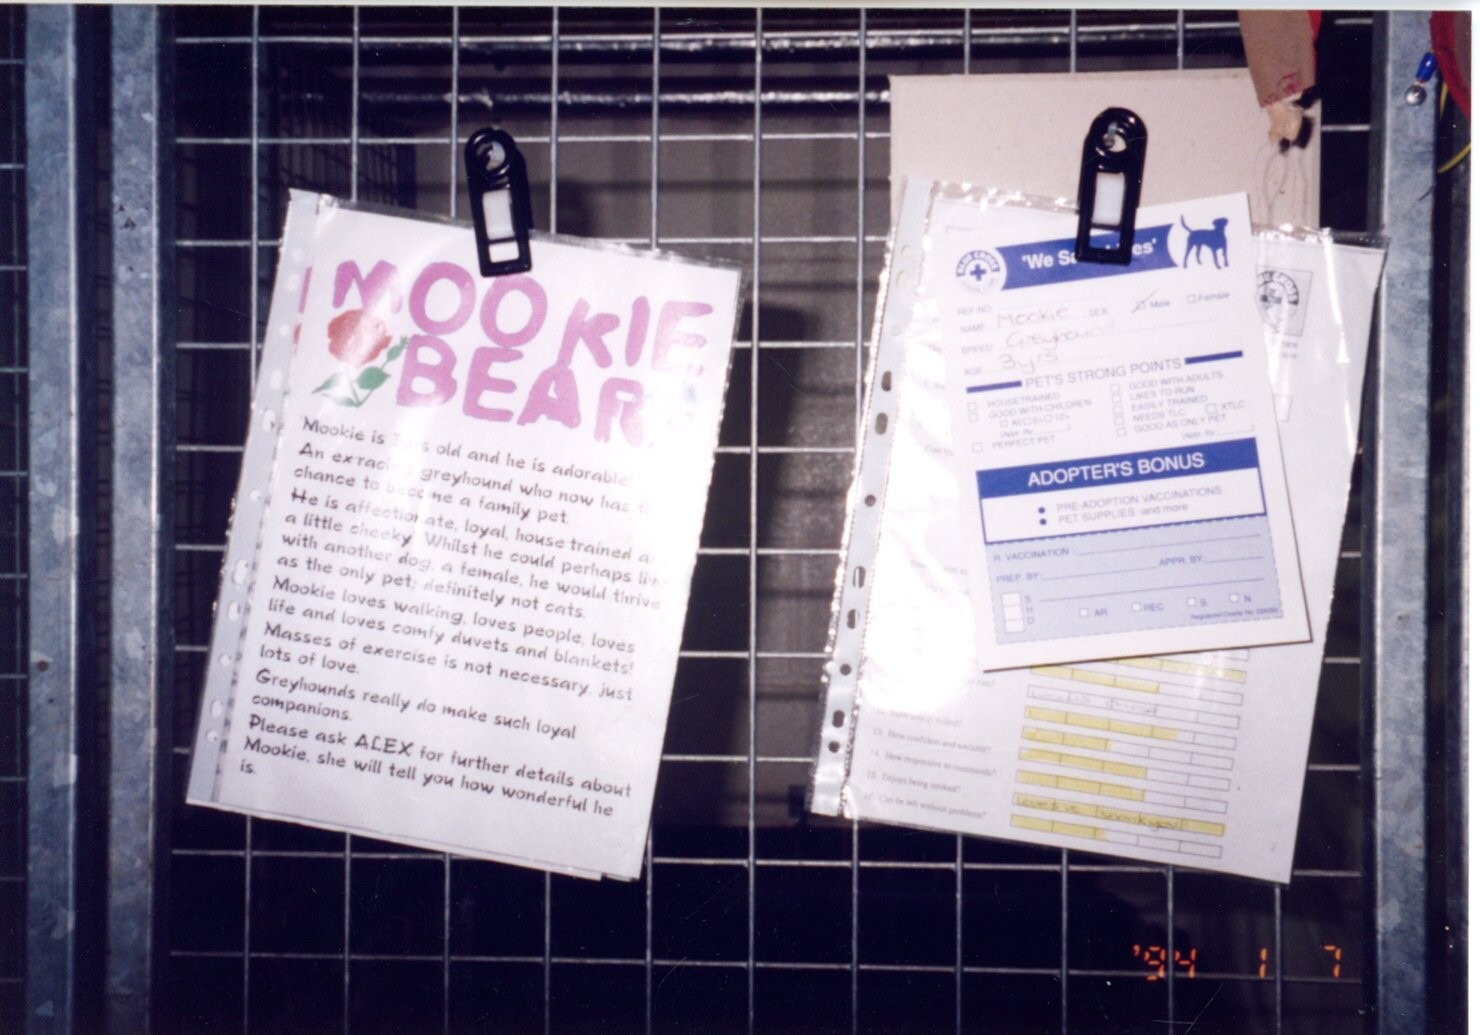 MOOKIE
BEAR
Mookie is 3 yrs old and he is adorable!
An ex racing greyhound who now has th
chance to become a family pet.
He is affectionate, loyal, house trained a
a little cheeky. Whilst he could perhaps live
with another dog, a female, he would thrive
as the only pet; definitely not cats.
Mookie loves walking, loves people, loves
life and loves comfy duvets and blankets!
Masses of exercise is not necessary, just
lots of love.
Greyhounds really do make such loyal
companions.
Please ask ALEX for further details about
Mookie, she will tell you how wonderful he
is.
BLUE CROSS
'We Sa es'
REF NO.
NAME Mookie SEX Male Female
BREED Greyhound
AGE 3yrs
PET'S STRONG POINTS
HOUSETRAINED
GOOD WITH CHILDREN
(Appr. By
PERFECT PET
GOOD WITH ADULTS
LIKES TO RUN
EASILY TRAINED
NEEDS TLC XTLC
GOOD AS ONLY PET
(Appr. By
ADOPTER'S BONUS
• PRE-ADOPTION VACCINATIONS
• PET SUPPLIES -and more
R. VACCINATION
PREP. BY: APPR. BY
S
H
D
AR REC S N
Registered Charity No.
13. How confident and sociable?
14. How responsive to commands?
15. Enjoys being stroked?
Can be left without problems?
'94 1 7